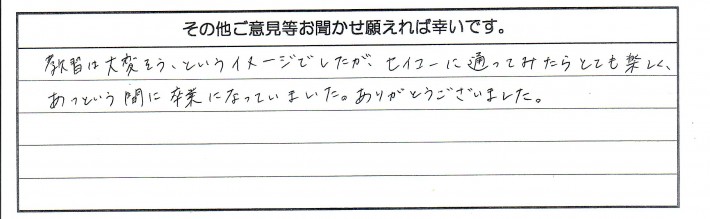 その他ご意見等お聞かせ願えれば幸いです。
教習は大変そう、というイメージでしたが、セイコーに通ってみたらとても楽しく、
あっという間に卒業になっていました。ありがとうございました。